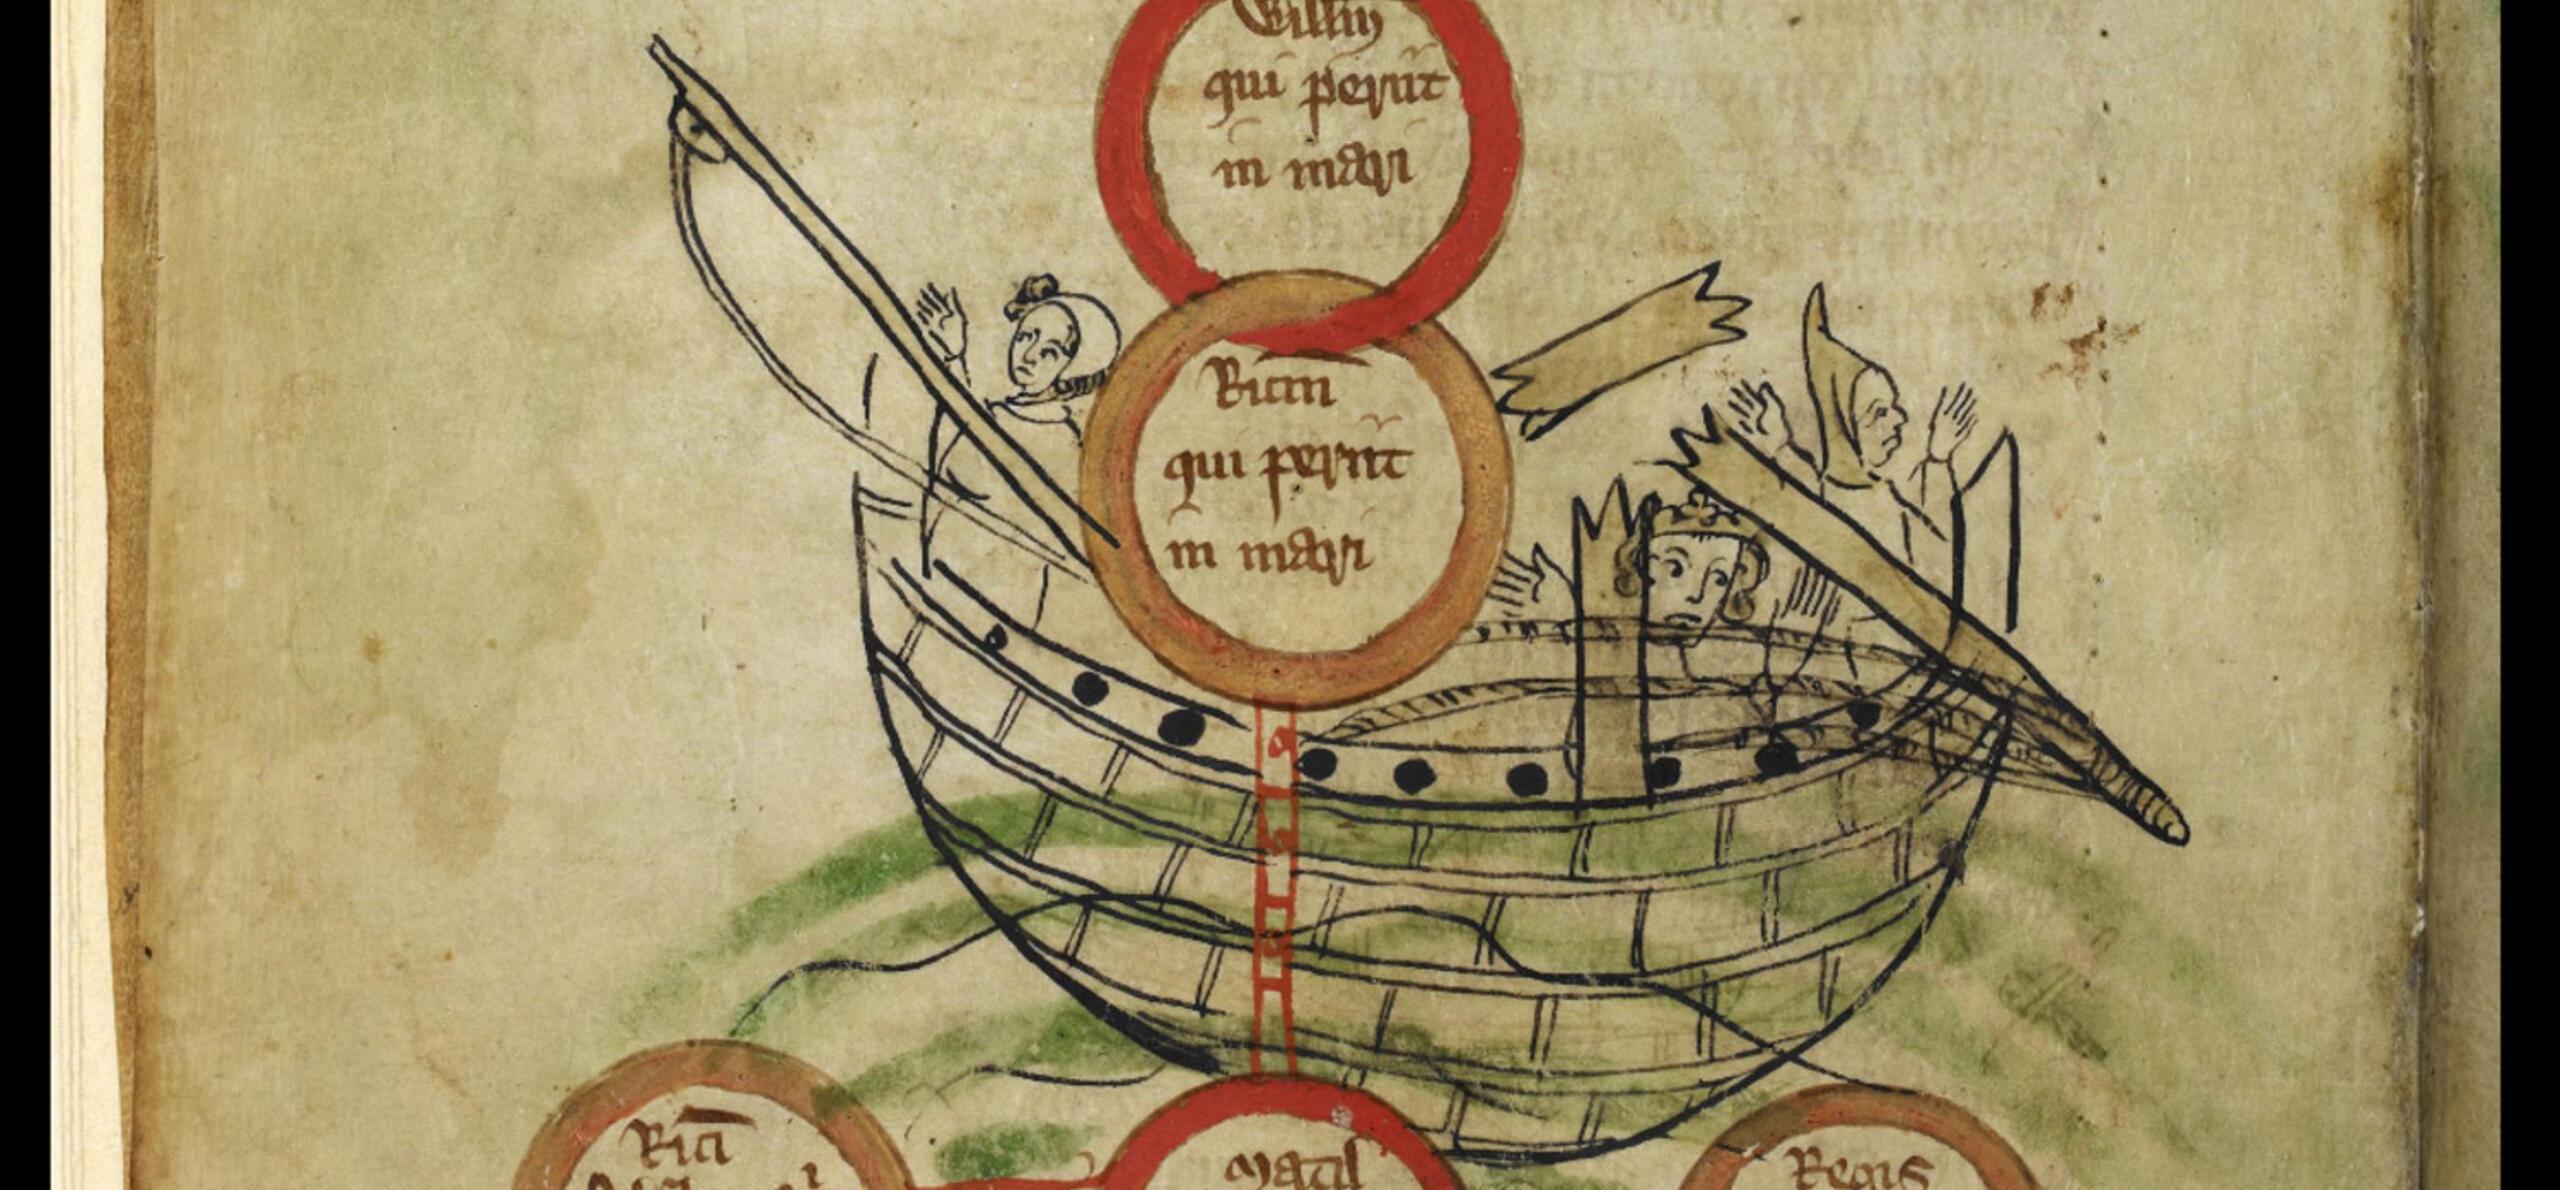 Willm̄
qui periit
in mari
Ricm
qui periit
in mari
Rici
Matil
Regis